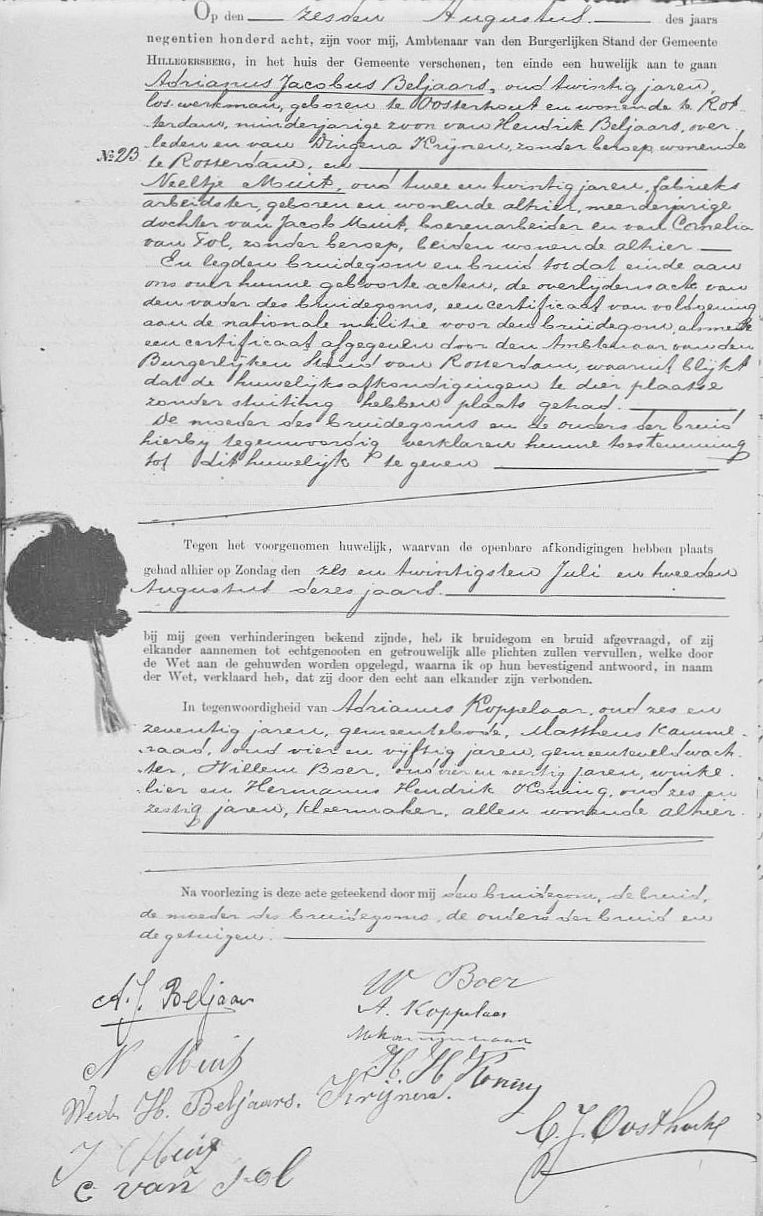 Op den zesden Augustus des jaars
negentien honderd acht, zijn voor mij, Ambtenaar van den Burgerlijken Stand der Gemeente
HILLEGERSBERG, in het huis der Gemeente verschenen, ten einde een huwelijk aan te gaan
Adrianus Jacobus Beljaars, oud twintig jaren,
los werkman, geboren te Oosterhout en wonende te Rot-
terdam, minderjarige zoon van Hendrik Beljaars, over-
leden en van Dingena Krijnen, zonder beroep, wonende
No 23
te Rotterdam, en
Neeltje Muit, oud twee en twintig jaren, fabrieks
arbeidster, geboren en wonende alhier, meerderjarige
dochter van Jacob Muit, boerenarbeider en van Cornelia
van Tol, zonder beroep, beiden wonende alhier
En legden bruidegom en bruid tot dat einde aan
ons over hunne geboorte acten, de overlijdensacte van
den vader des bruidegoms, een certificaat van voldoening
aan de nationale militie voor den bruidegom, alsmede
een certificaat afgegeven door den Ambtenaar van den
Burgerlijken Stand van Rotterdam, waaruit blijkt
dat de huwelijksafkondigingen te dier plaatse
zonder stuiting hebben plaats gehad.
De moeder des bruidegoms en de ouders der bruid
hierbij tegenwoordig verklaren hunne toestemming
tot dit huwelijk te geven
Tegen het voorgenomen huwelijk, waarvan de openbare afkondigingen hebben plaats
gehad alhier op Zondag den zes en twintigsten Juli en tweeden
Augustus dezes jaars.
bij mij geen verhinderingen bekend zijnde, heb ik bruidegom en bruid afgevraagd, of zij
elkander aannemen tot echtgenooten en getrouwelijk alle plichten zullen vervullen, welke door
de Wet aan de gehuwden worden opgelegd, waarna ik op hun bevestigend antwoord, in naam
der Wet, verklaard heb, dat zij door den echt aan elkander zijn verbonden.
In tegenwoordigheid van Adrianus Koppelaar, oud zes en
zeventig jaren, gemeentebode, Mattheus Kamme-
raad, oud vier en vijftig jaren, gemeenteveldwach-
ter, Willem Boer, oud vier en veertig jaren, winke-
lier en Hermanus Hendrik Koning, oud zes en
zestig jaren, kleermaker, allen wonende alhier.
Na voorlezing is deze acte geteekend door mij den bruidegom, de bruid,
de moeder des bruidegoms, de ouders der bruid en
de getuigen.
A. J. Beljaars
W Boer
A. Koppelaar
N Muit
H. H. Koning
Wed. H. Beljaars. Krijnen.
J Muit
C. J. Oosthoek
C van Tol